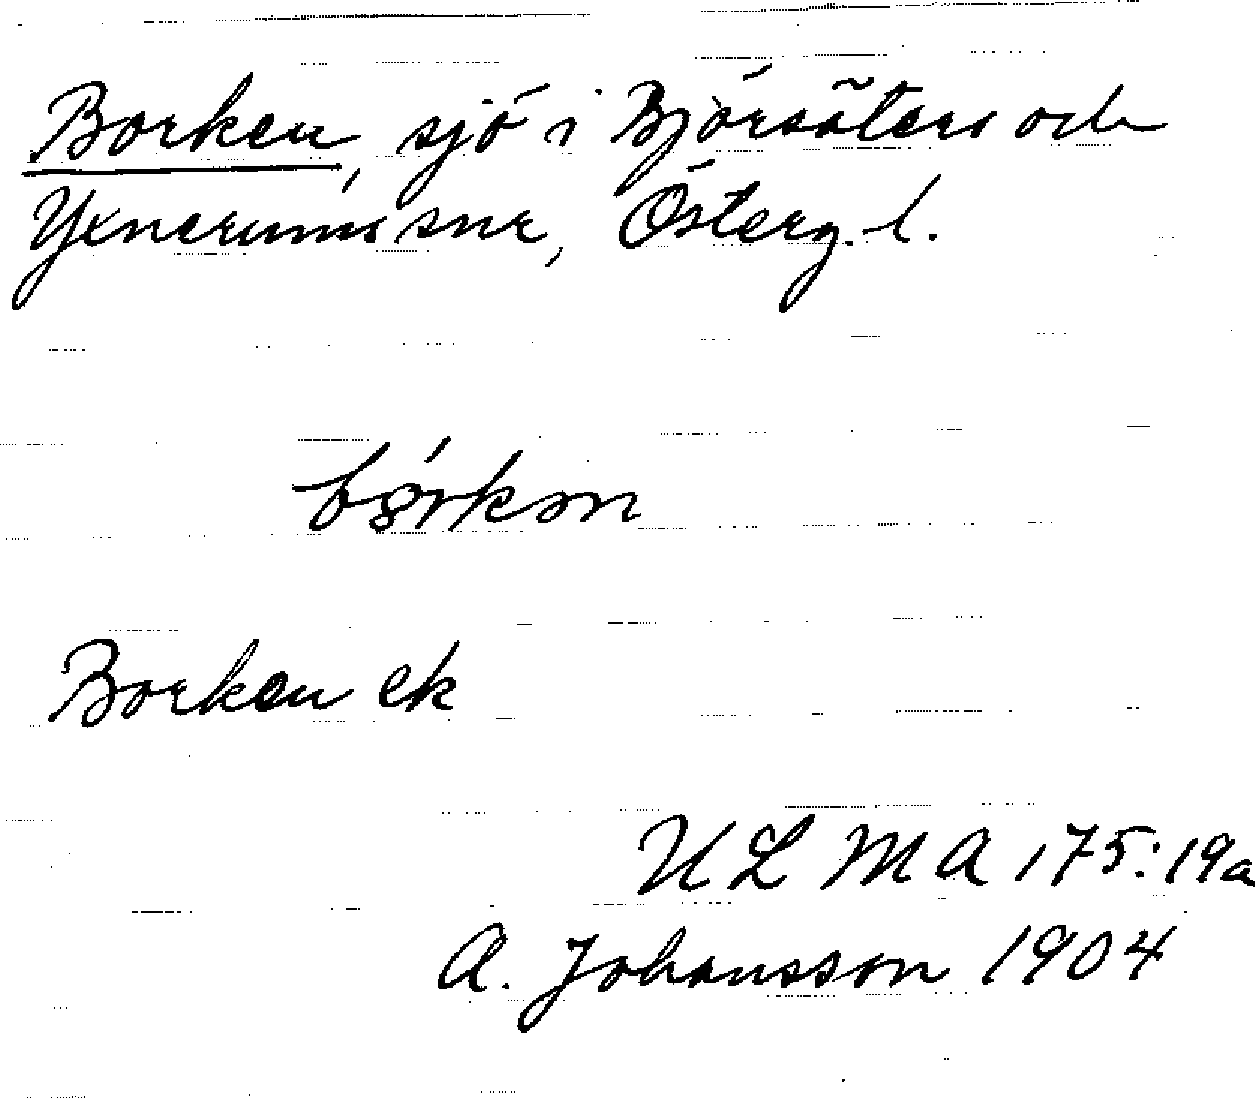 Borken, sjö i Björsäters och
Yxnerums snr, Österg. l.
bɷ́rkən
Borken ek
ULMA 175:19a
A. Johansson 1904